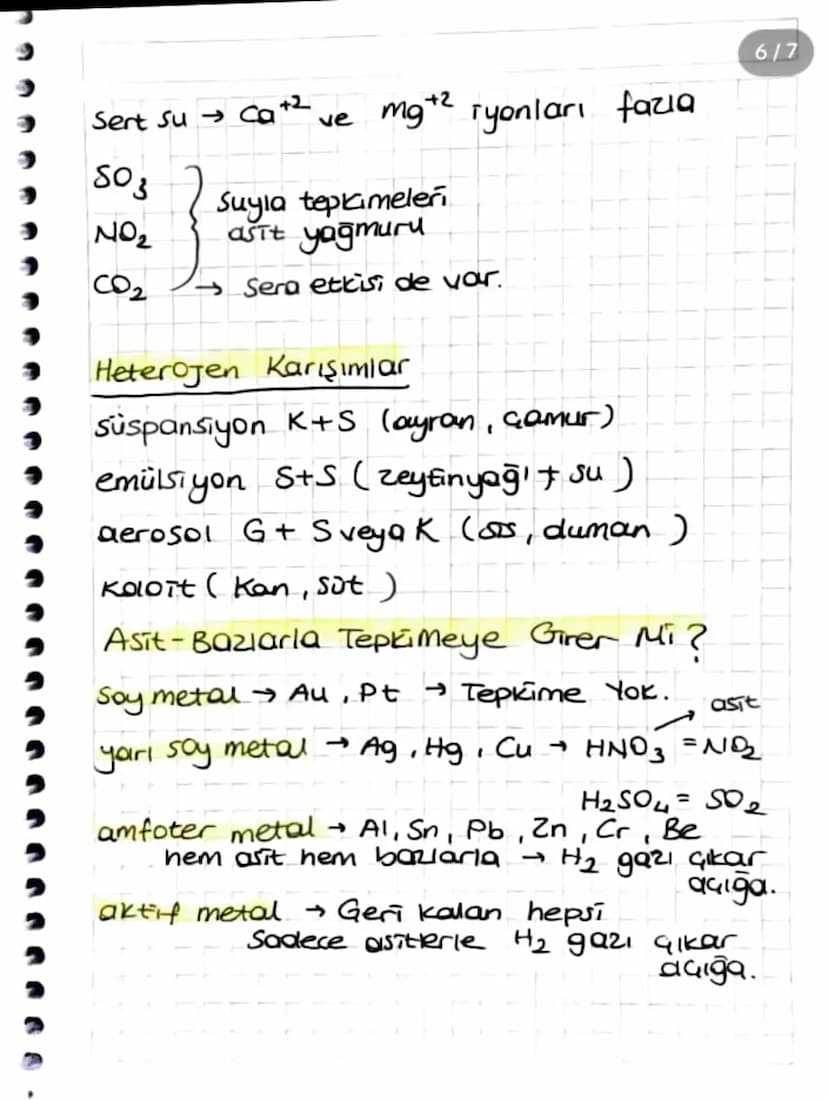 6/7
Sert su → Ca+2 ve Mg+2 iyonları fazla
SO3
NO2
CO2
suyla tepkimeleri
asit yağmuru
→ Sera etkisi de var.
Heterojen Karışımlar
süspansiyon K+S (ayran, çamur)
emülsiyon S+S (zeytinyağı + su)
aerosol G+ S veya K (sis, duman)
Koloit (Kan, süt)
Asit-Bazlarla Tepkimeye Girer Mi?
Soy metal → Au, Pt → Tepkime Yok.
asit
yarı soy metal → Ag, Hg, Cu → HNO3 = NO2
H2SO4 = SO2
amfoter metal → Al, Sn, Pb, Zn, Cr, Be
hem asit hem bazlarla → H2 gazı çıkar
açığa.
aktif metal → Geri kalan hepsi
Sadece asitlerle H2 gazı çıkar
açığa.